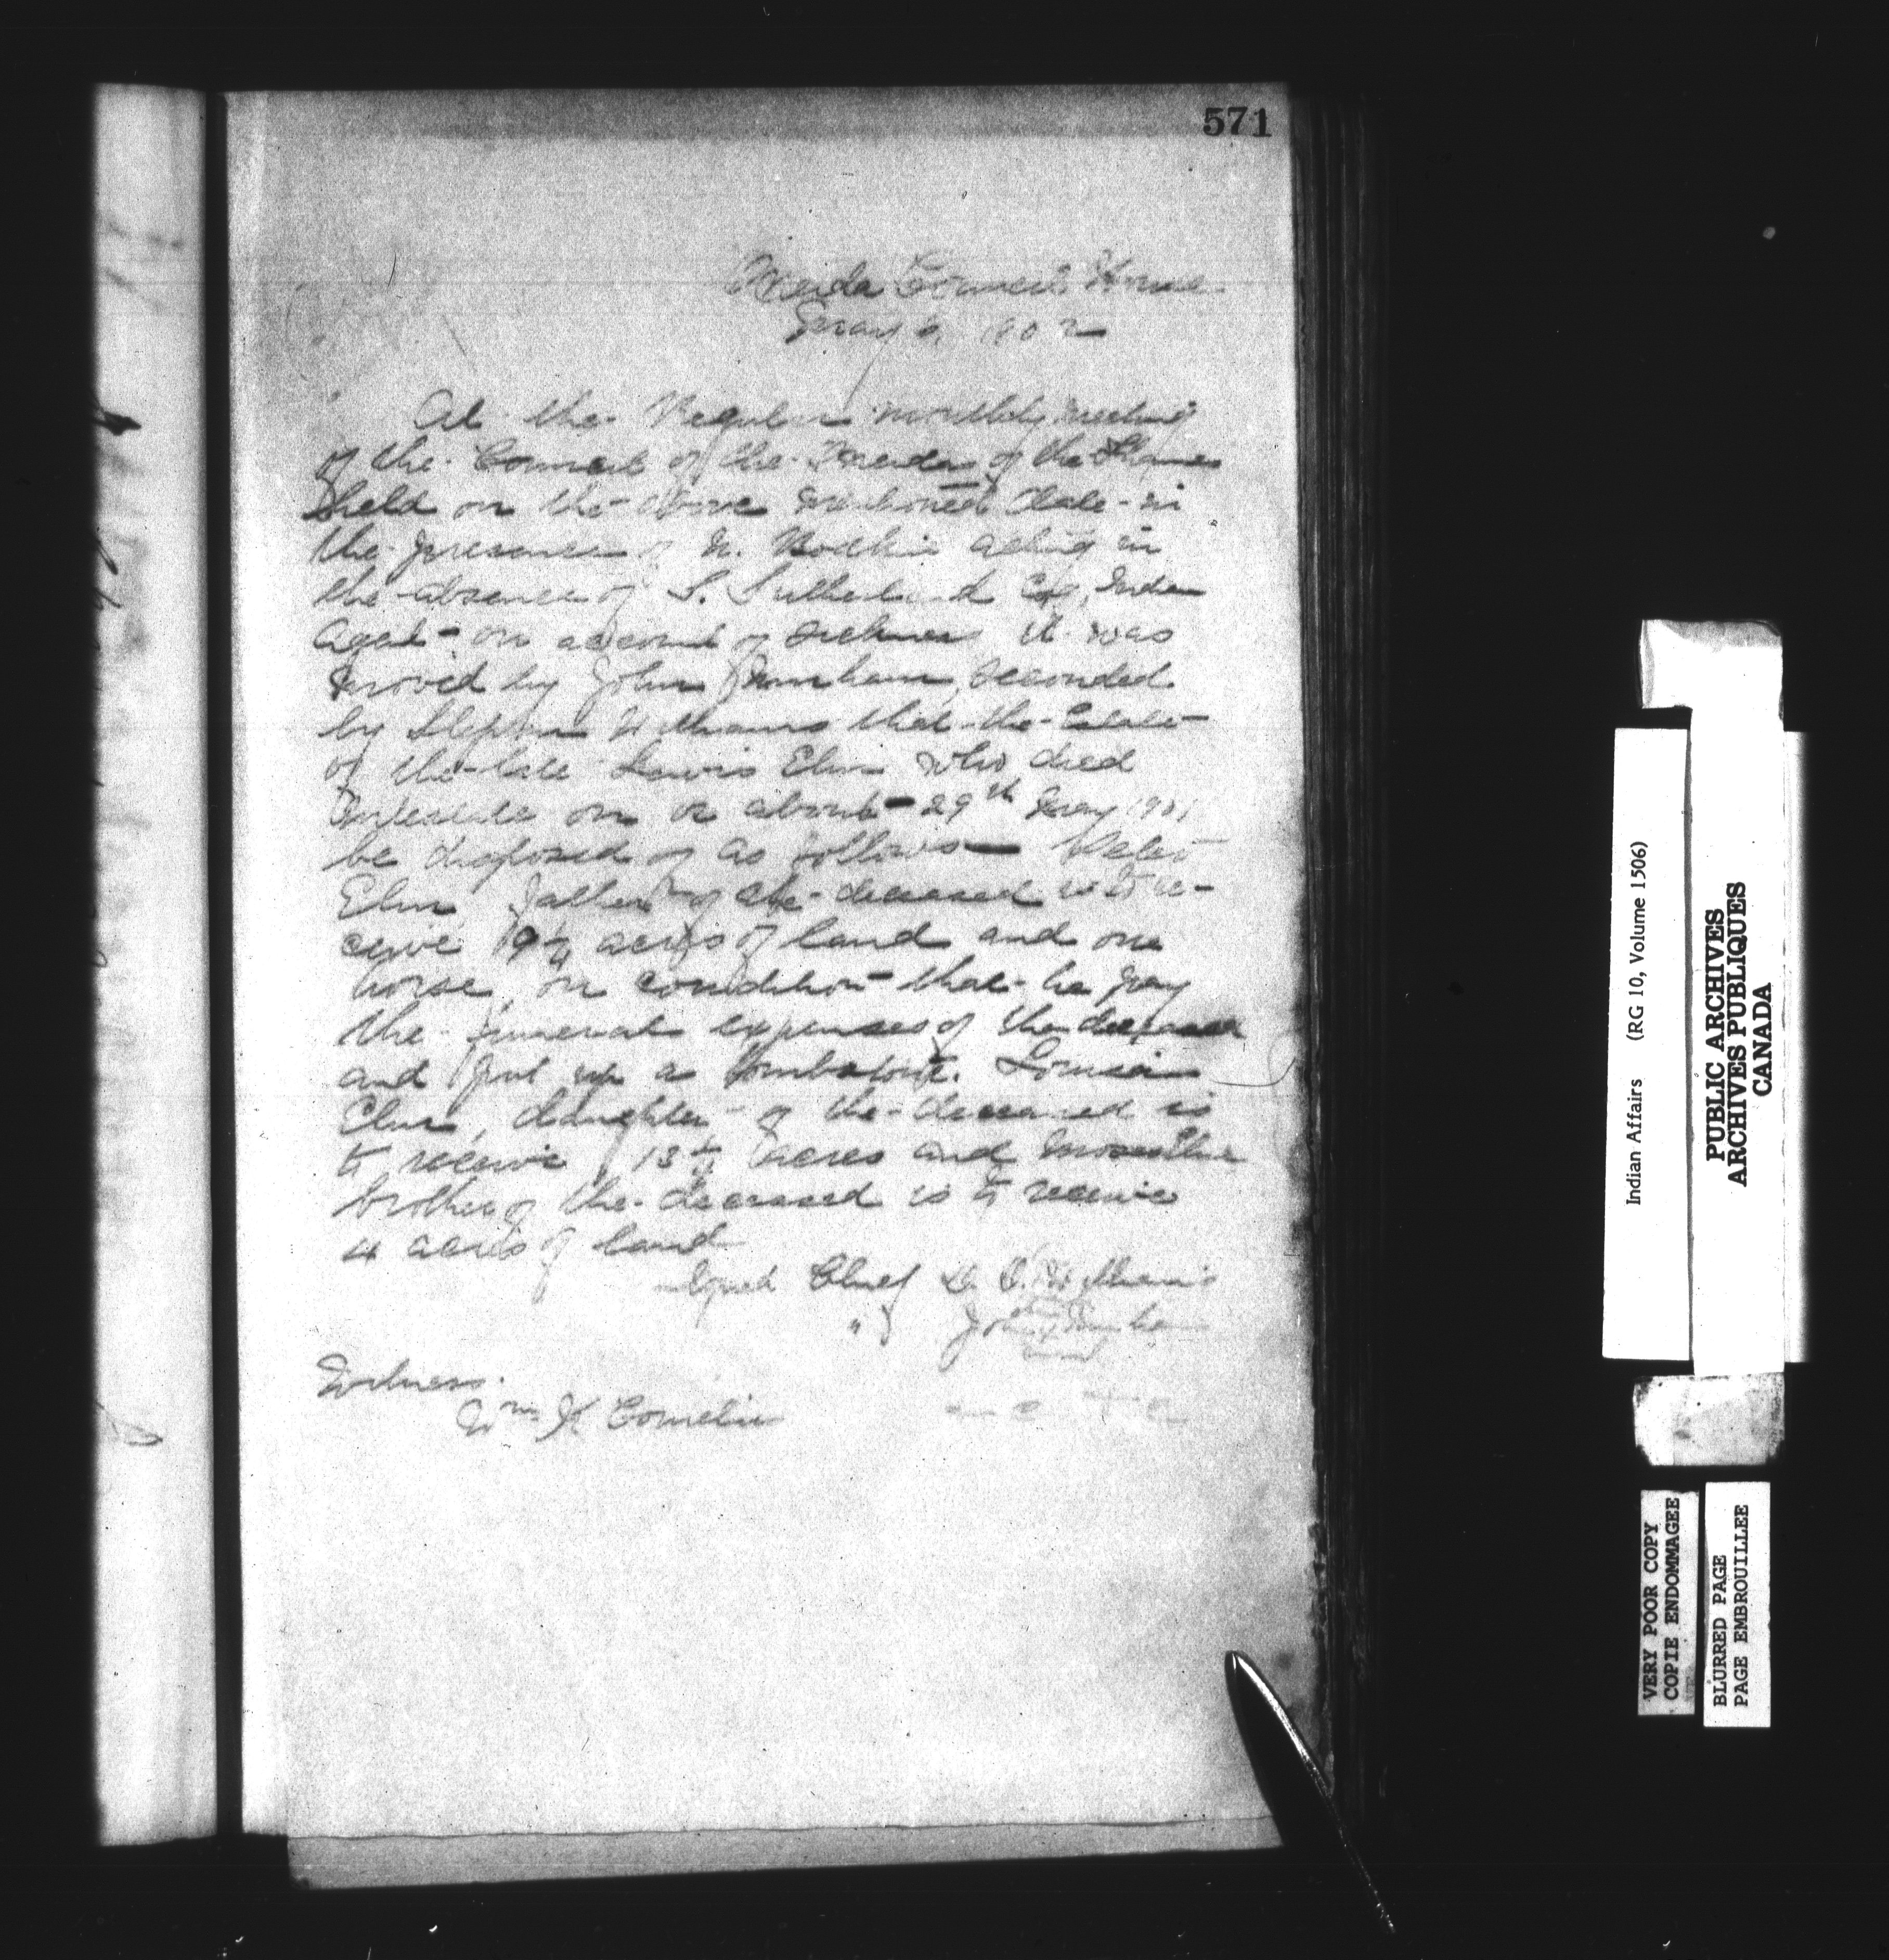 571
Oneida Council House
May 6, 1902
At the Regular monthly meeting
of the Council of the Oneidas of the Thames
held on the above mentioned date in
the presence of Bodkin acting in
the absence of S. Sutherland Esq, Indian
Agent on account of sickness it was
moved by John seconded
by Stephen Williams that the Estate
of the late Lewis Elm who died
intestate on or about 29th May 1901
be disposed of as follows
Elm father of the deceased is to re-
ceive 19¼ acres of land and one
horse, on condition that he pay
the funeral expenses of the deceased
and put up a tombstone. Louisa
Elm, daughter of the deceased is
to receive 13 acres and Moses Elm
brother of the deceased is to receive
4 acres of land
Signed Chief Williams
" John
Witness.
Wm K Cornelius
Indian Affairs (RG 10, Volume 1506)
PUBLIC ARCHIVES
ARCHIVES PUBLIQUES
CANADA
VERY POOR COPY
COPIE ENDOMMAGEE
BLURRED PAGE
PAGE EMBROUILLEE